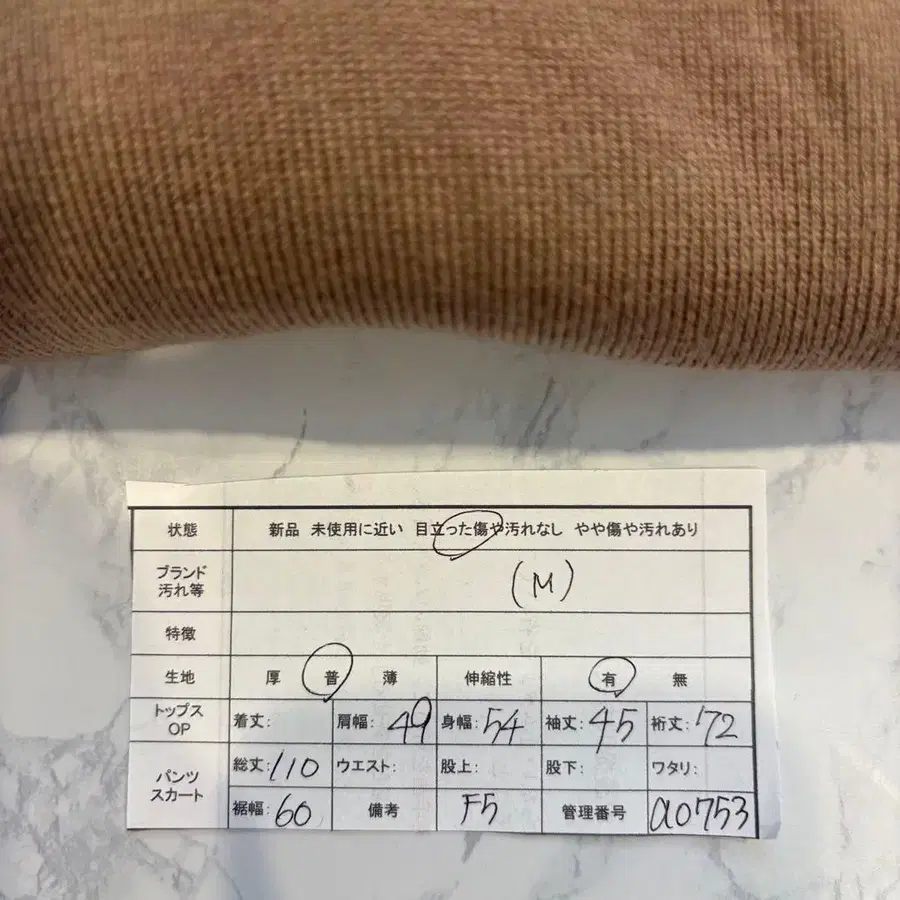 状態 新品 未使用に近い 目立った傷や汚れなし やや傷や汚れあり
ブランド
汚れ等 (M)
特徴
生地 厚 普 薄 伸縮性 有 無
トップス
OP 着丈: 肩幅: 49 身幅: 54 袖丈: 45 裄丈: 72
パンツ
スカート 総丈: 110 ウエスト: 股上: 股下: ワタリ:
裾幅: 60 備考 F5 管理番号 a0753